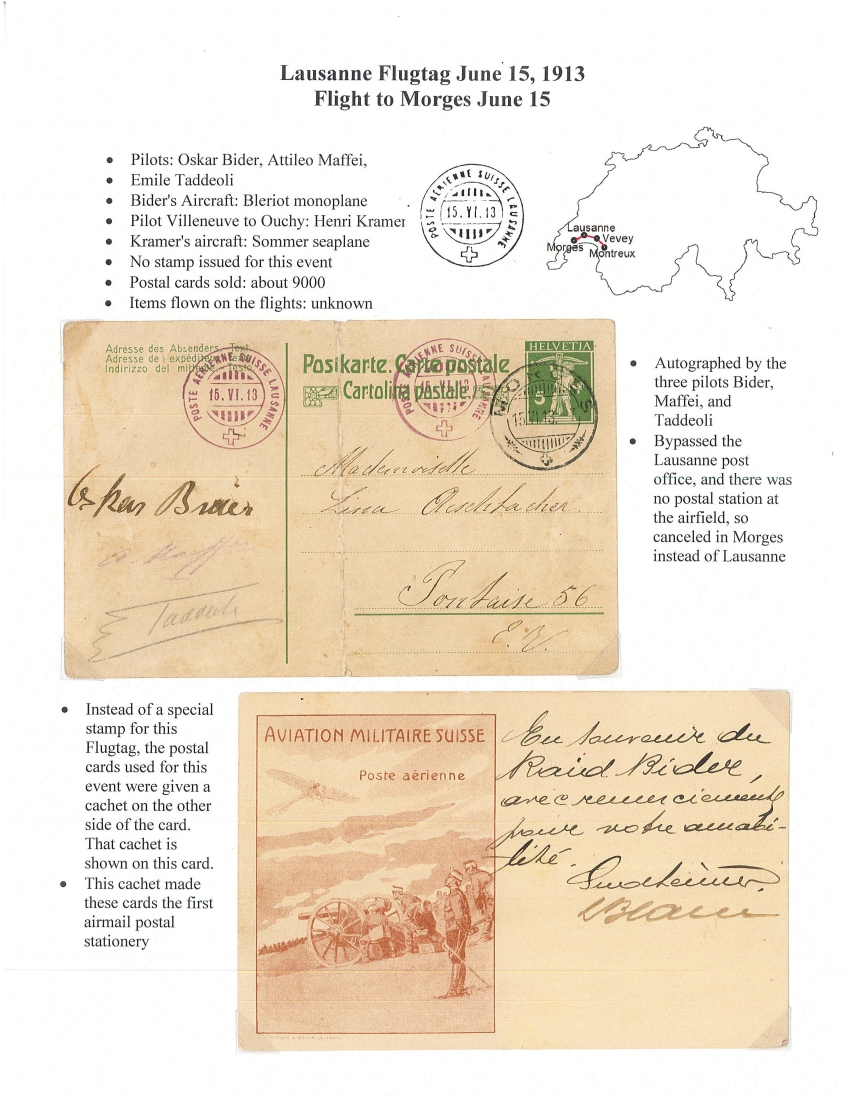 Lausanne Flugtag June 15, 1913
Flight to Morges June 15
• Pilots: Oskar Bider, Attileo Maffei,
• Emile Taddeoli
• Bider's Aircraft: Bleriot monoplane
• Pilot Villeneuve to Ouchy: Henri Kramer
• Kramer's aircraft: Sommer seaplane
• No stamp issued for this event
• Postal cards sold: about 9000
• Items flown on the flights: unknown
POSTE AÉRIENNE SUISSE LAUSANNE
15. VI. 13
Lausanne
Vevey
Morges
Montreux
Adresse des Absenders - Text
Adresse de l'expéditeur - Texte
Indirizzo del mittente - Testo
POSTE AÉRIENNE SUISSE LAUSANNE
15. VI. 13
Postkarte. Carte postale
Cartolina postale.
POSTE AÉRIENNE SUISSE LAUSANNE
15. VI. 13
HELVETIA
5
MORGES
15. VI. 13.
Mademoiselle
Lina Aeschbacher.
Pontaise 56
E. V.
Oskar Bider
Taddeoli
• Autographed by the
three pilots Bider,
Maffei, and
Taddeoli
• Bypassed the
Lausanne post
office, and there was
no postal station at
the airfield, so
canceled in Morges
instead of Lausanne
• Instead of a special
stamp for this
Flugtag, the postal
cards used for this
event were given a
cachet on the other
side of the card.
That cachet is
shown on this card.
• This cachet made
these cards the first
airmail postal
stationery
AVIATION MILITAIRE SUISSE
Poste aérienne
En souvenir du
Raid Bider,
avec remerciements
pour votre amabi-
lité.